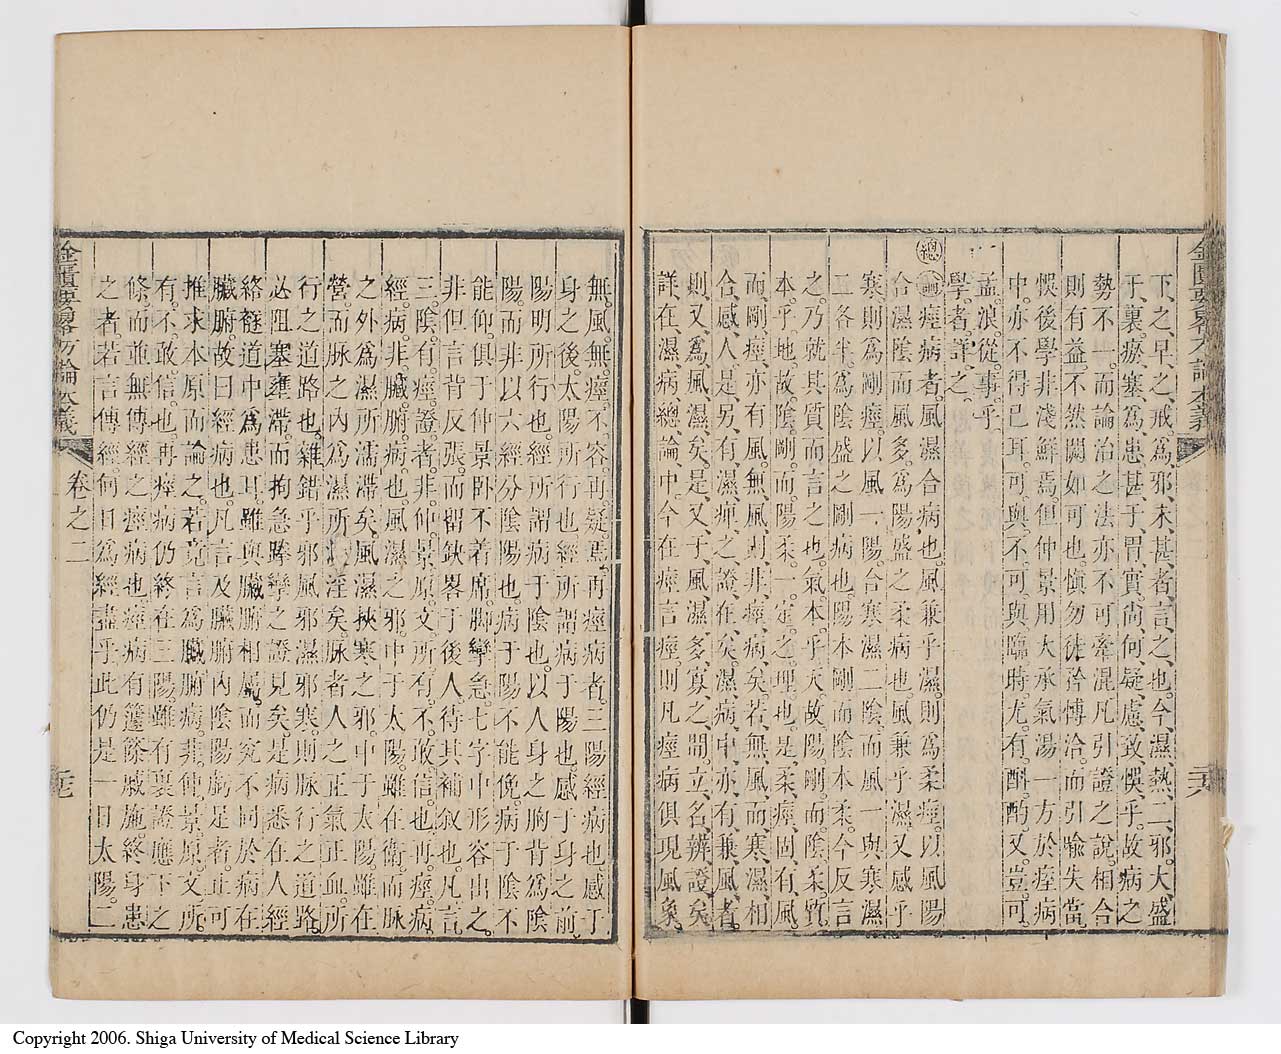 金匱要畧方論本義
下之早之戒爲邪未甚者言之也今濕熱二邪大盛
于裏瘀塞爲患甚于胃實尚何疑慮致悞乎故病之
勢不一而論治之法亦不可牽混凡引證之說相合
則有益不然闕如可也愼勿徒矜博洽而引喩失當
悞後學非淺鮮焉但仲景用大承氣湯一方於痙病
中亦不得已耳可與不可與臨時尤有酌酌又豈可
孟浪從事乎
學者詳之
總論痙病者風濕合病也風兼乎濕則爲柔痙以風陽
合濕陰而風多爲陽盛之柔病也風兼乎濕又感乎
寒則爲剛痙以風一陽合寒濕二陰而風一與寒濕
二各半爲陰盛之剛病也陽本剛而陰本柔今反言
之乃就其質而言之也氣本乎天故陽剛而陰柔質
本乎地故陰剛而陽柔一定之理也是柔痙固有風
而剛痙亦有風無風則非痙病矣若無風而寒濕相
合感人是另有濕痺之證在矣濕病中亦有兼風者
則又爲風濕矣是又于風濕多寡之間立名辨證矣
詳在濕病總論中今在痙言痙則凡痙病俱現風象
二十六
無風無痙不容再疑焉再痙病者三陽經病也感于
身之後太陽所行也經所謂病于陽也感于身之前
陽明所行也經所謂病于陰也以人身之胸背爲陰
陽而非以六經分陰陽也病于陽不能俛病于陰不
能仰俱于仲景臥不着席脚攣急七字中形容出之
非但言背反張而畱缺畧于後人待其補敘也凡言
三陰有痙證者非仲景原文所有不敢信也再痙病
經病非臟腑病也風濕之邪中于太陽雖在衛而脉
之外爲濕所濡滯矣風濕挾寒之邪中于太陽雖在
營而脉之內爲濕所淫矣脉者人之正氣正血所
行之道路也雜錯乎邪風邪濕邪寒則脉行之道路
必阻塞壅滯而拘急踡攣之證見矣是病悉在人經
絡隧道中爲患耳雖與臟腑相屬而究不同於病在
臟腑故曰經病也凡言及臟腑內陰陽虧足者止可
推求本原而論之若竟言爲臟腑病非仲景原文所
有不敢信也再痙病仍終在三陽雖有裏證應下之
條而並無傳經之痙病也痙病有籧篨戚施終身患
之者若言傳經何日爲經盡乎此仍是一日太陽二
金匱要畧方論本義
卷之二
二十七
Copyright 2006. Shiga University of Medical Science Library